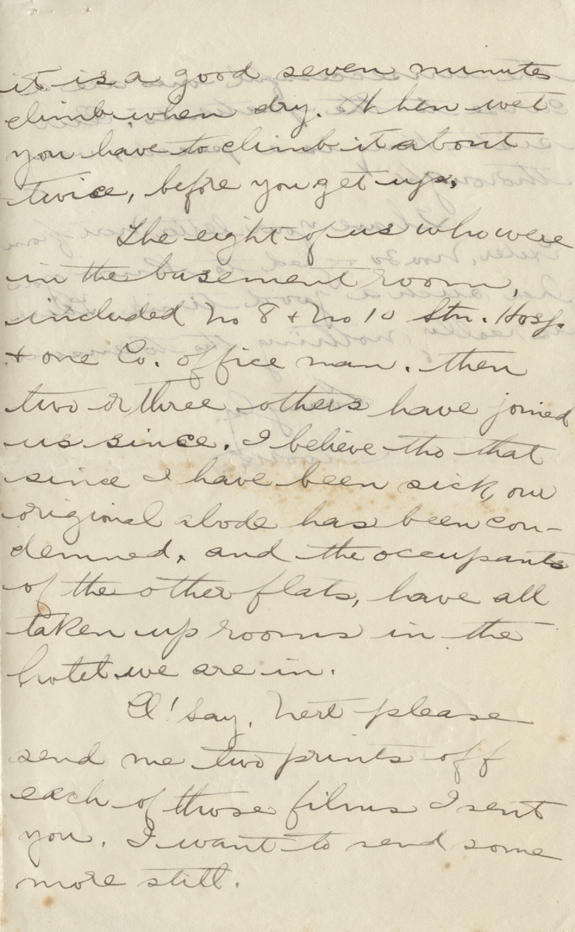 it is a good seven minutes
climb when dry. When wet
you have to climb it about
twice, before you get up.
The eight of us who were
in the basement room,
included No 8 + No 10 Stn. Hosp.
+ one Co. office man. then
two or three others have joined
us since. I believe tho that
since I have been sick, our
original abode has been con-
demned, and the occupants
of the other flats, have all
taken up rooms in the
hotel we are in.
I' say, Nert please
send me two prints off
each of those films I sent
you. I want to send some
more still.